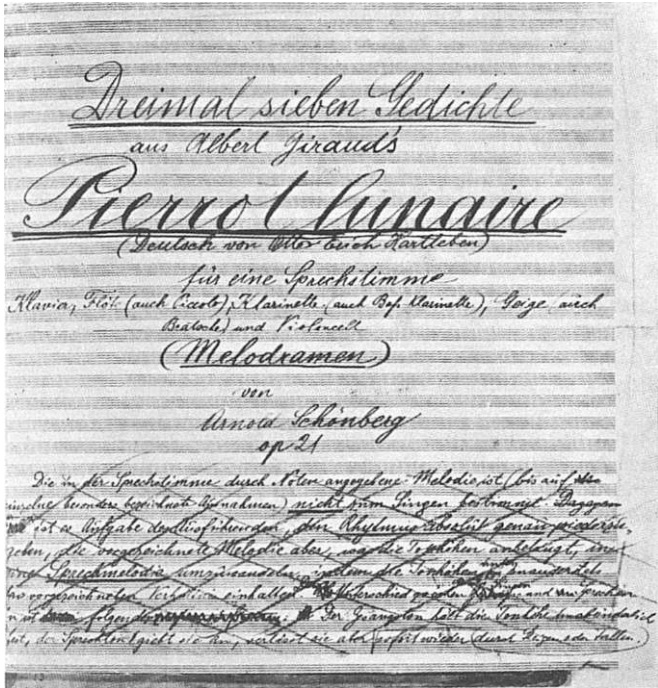 Dreimal sieben Gedichte
aus Albert Giraud's
Pierrot lunaire
(Deutsch von Otto Erich Hartleben)
für eine Sprechstimme
Klavier, Flöte (auch Piccolo), Klarinette (auch Baß-Klarinette), Geige (auch
Bratsche) und Violoncell
(Melodramen)
von
Arnold Schönberg
op 21
Die in der Sprechstimme durch Noten angegebene Melodie ist (bis auf
einzelne besonders bezeichnete Ausnahmen) nicht zum Singen bestimmt. Dagegen
hat es Aufgabe des Ausführenden, den Rhythmus absolut genau wiederzu-
geben, die vorgezeichnete Melodie aber, was die Tonhöhen anbelangt, in
eine Sprechmelodie umzuwandeln, indem die Tonhöhen untereinander stets
vorgezeichneten Verhältnis einhalten. Unterschied zwischen und Sprechen
ist folgender: Der Gesangston hält die Tonhöhe unabänderlich
fest, der Sprechton giebt sie an, verlässt sie aber sofort wieder (durch Steigen oder Fallen.)